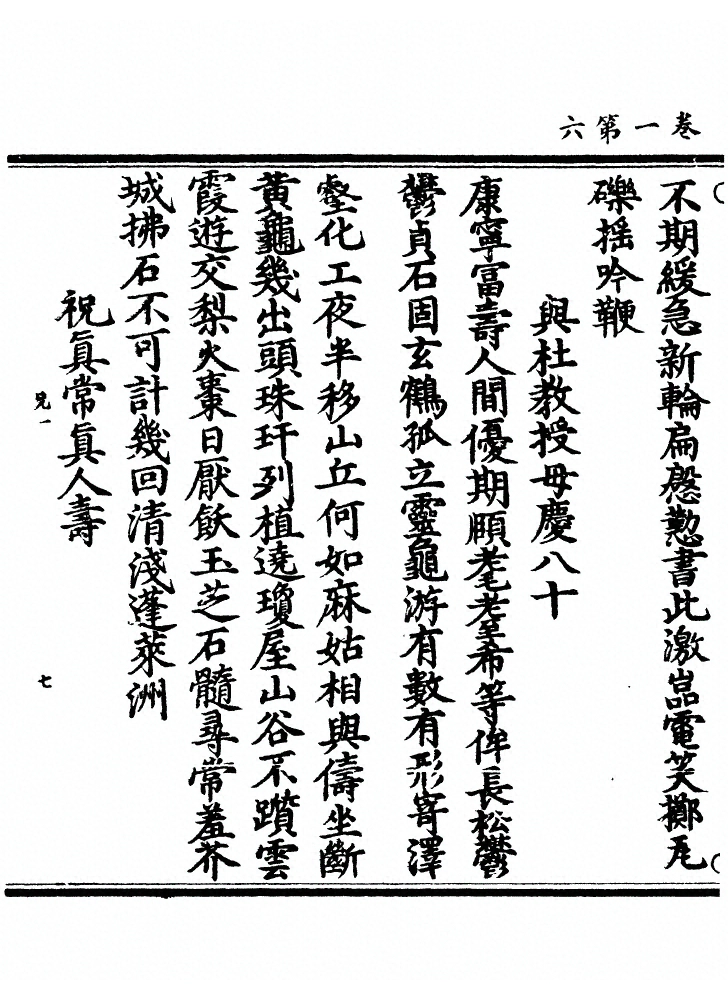 卷一第六
不期緩急新輪扁慇懃書此激嵓電笑擲瓦
礫揺吟鞭
與杜教授母慶八十
康寧冨壽人間優期頥耄耋希等侔長松鬱
鬱貞石固玄鶴孤立靈龜游有數有形寄澤
壑化工夜半移山丘何如麻姑相與儔坐斷
黄龜幾出頭珠玕列植遶瓊屋山谷不躓雲
霞遊交梨火棗日厭飫玉芝石髓尋常羞芥
城拂石不可計幾回清淺蓬萊洲
祝眞常眞人壽
兒一
七